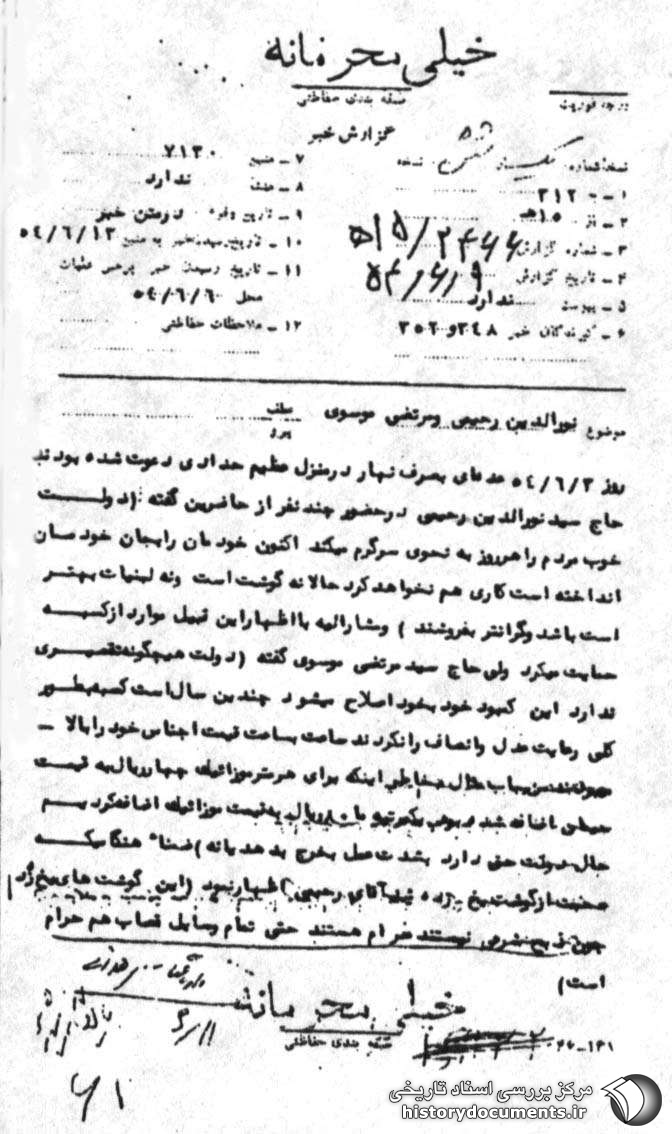 خیلی محرمانه
طبقه بندی حفاظتی
درجه فوریت
گزارش خبر
نسخه شماره یک از شش نسخه
۱ – به ۳۱۲
۲ – از ۱۵ هـ
۳ – شماره گزارش ۱۵/۲۴۶۶ هـ
۴ – تاریخ گزارش ۵۴/۶/۹
۵ – پیوست ندارد
۶ – گیرندگان خبر ۳۴۸ و ۳۵۲
۷ – منبع ۷۱۳۰
۸ – هدف ندارد
۹ – تاریخ وقوع درمتن خبر
۱۰ – تاریخ رسیدن خبر به منبع ۵۴/۶/۱۳
۱۱ – تاریخ رسیدن خبر به رهبر عملیات
محل ۵۴/۶/۶۰
۱۲ – ملاحظات حفاظتی
موضوع نورالدین رحیمی ومرتضی موسوی
عطف
پیرو
روز ۵۴/۶/۳ عده‌ای بصرف نهار درمنزل عظیم حدادی دعوت شده بودند
حاج سید نورالدین رحیمی درحضور چند نفر از حاضرین گفته : (دولت
خوب مردم را هرروز به نحوی سرگرم میکند اکنون خودمان رابجان خودمان
انداخته است کاری هم نخواهد کرد حالا نه گوشت است ونه لبنیات بهتر
است باشد وگرانتر بفروشند ) ومشارالیه بااظهار این قبیل موارد ازکسبه
حمایت میکرد ولی حاج سید مرتضی موسوی گفته (دولت هیچگونه تقصیری
ندارد این کمبود خود بخود اصلاح میشود چندین سال است کسبه بطور
کلی رعایت عدل وانصاف رانکردند ساعت بساعت قیمت اجناس خود رابالا –
اینکه برای هرمتر موزائیک چهار ریال به قیمت
اضافه شد به قیمت موزائیک اضافه کردیم
حال دولت حق دارد شدت عمل بخرج بدهد یانه ) ضمناً هنگامیکه
صحبت ازگوشت یخ زده شد آقای رحیمی اظهار نمود (این گوشت های یخ زده
چون ذبح شرعی نیستند حرام هستند حتی تمام وسایل قصاب هم حرام
است)
خیلی محرمانه
طبقه بندی حفاظتی
۶۱
مرکز بررسی اسناد تاریخی
historydocuments.ir